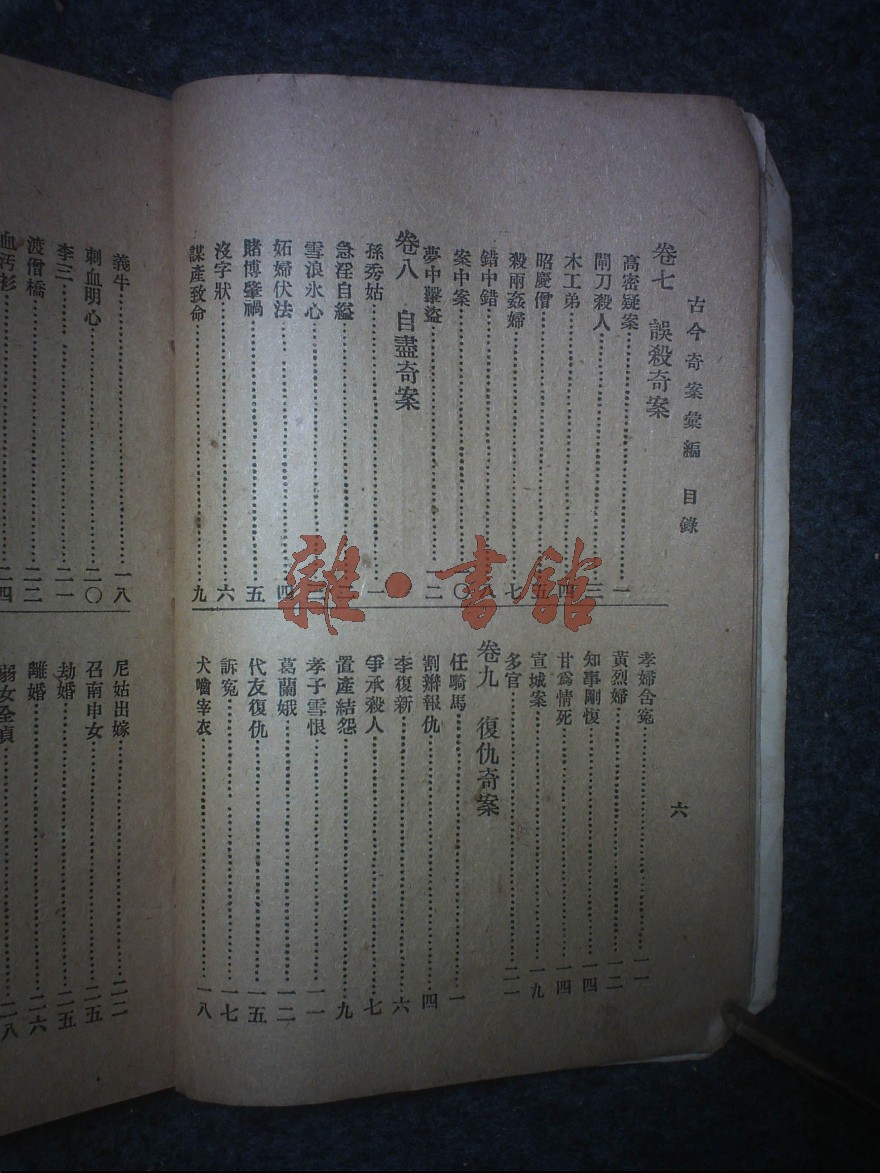 古今奇案彙編 目錄
卷七 誤殺奇案
高密疑案 一
鬧刀殺人 三
木工弟 四
昭慶僧 五
殺兩姦婦 七
錯中錯 八
案中案 一〇
夢中擊盜 一二
卷八 自盡奇案
孫秀姑 一
急淫自縊 二
雪浪氷心
妬婦伏法 四
賭博肇禍 五
沒字狀 六
謀產致命 九
六
孝婦含寃 一一
黃烈婦 一二
知事剛愎 一四
甘爲情死 一四
宣城案 一九
多官 二一
卷九 復仇奇案
任騎馬 一
割辮報仇 四
李復新 六
爭承殺人 七
置產結怨 九
孝子雪恨 一一
葛蘭娥 一二
代友復仇 一五
訴寃 一七
犬噙宰衣 一八
義牛 一八
刺血明心 二〇
李三 二一
渡僧橋 二二
血汚衫 二四
尼姑出嫁 二二
召南申女 二五
劫婚 二五
離婚 二六
弱女全貞 二八
雜·書館